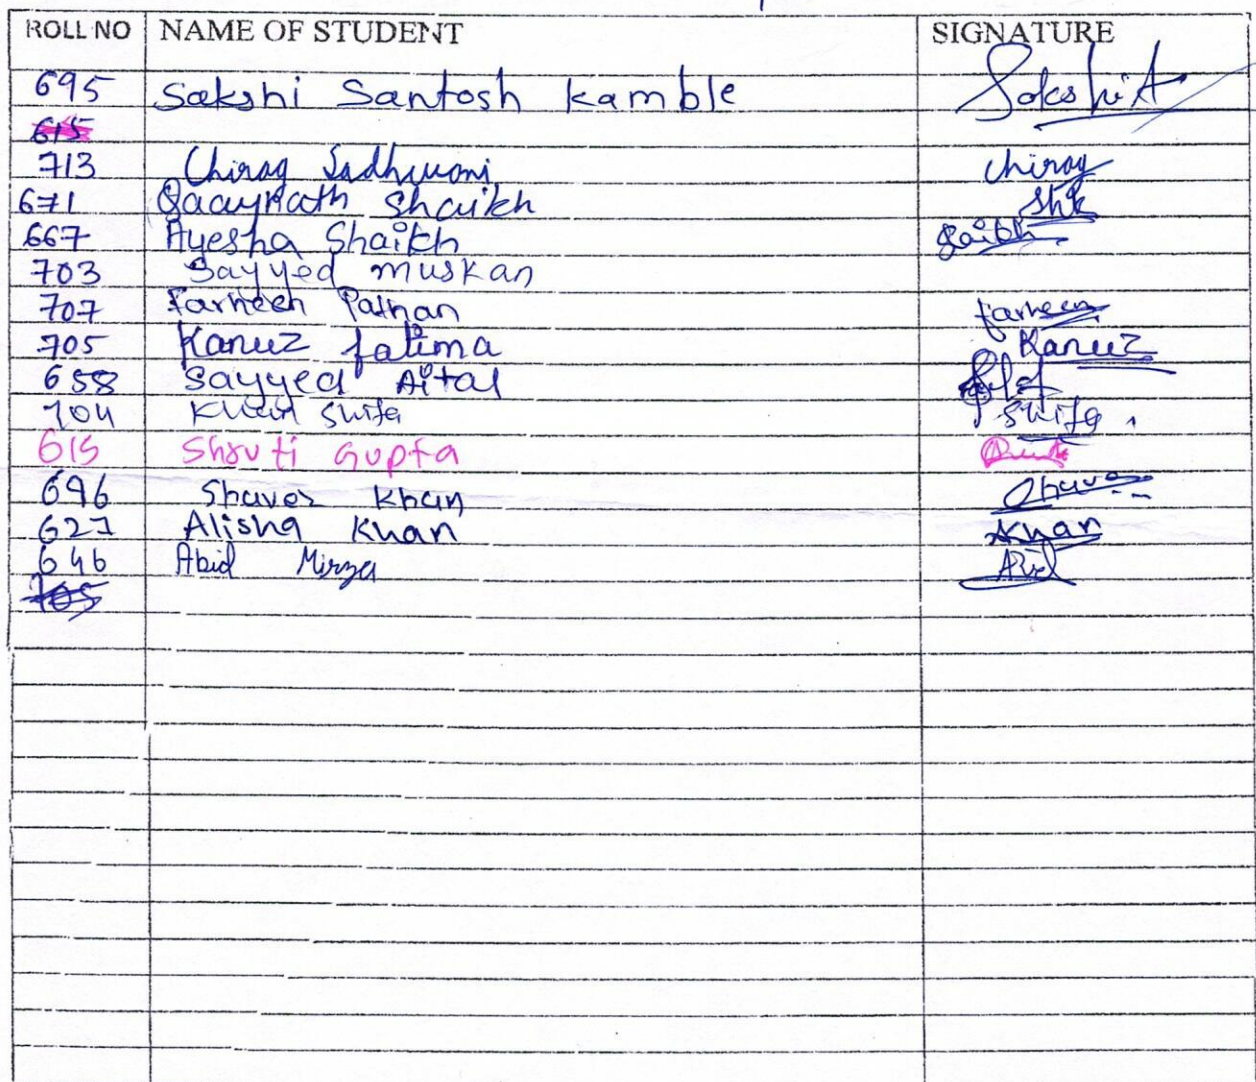 ROLL NO NAME OF STUDENT SIGNATURE
695 Sakshi Santosh kamble Sakshi
615
713 Chirag Sadhwani chirag
671 Shaikh Shk
667 Ayesha Shaikh
703 Sayyed muskan
707 Farheen Pathan farheen
705 Kanuz fatima Kanuz
658 Sayyed
704 Khan Shifa Shifa
615 Shruti Gupta
696 Shavez Khan Shavez
627 Alisha Khan Khan
646 Abid Mirza Abid
705